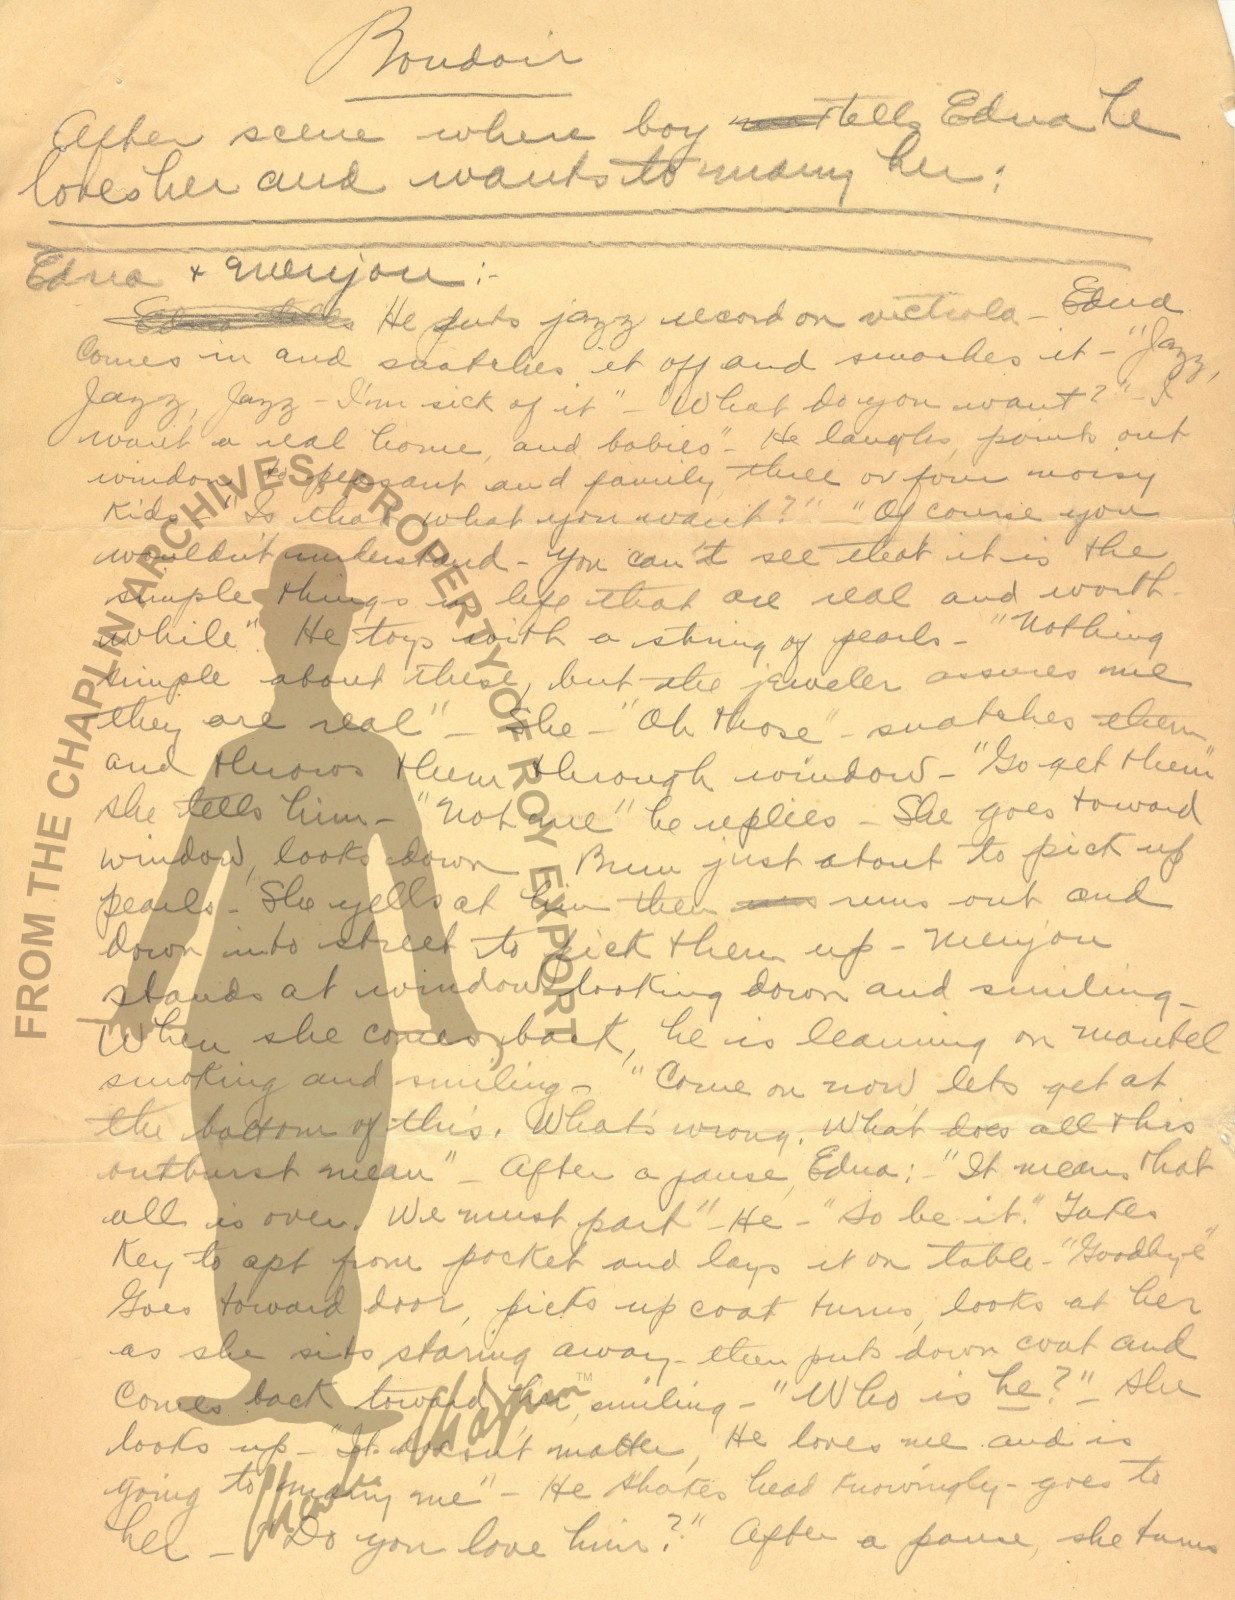 Boudoir
After scene where boy tells Edna he
loves her and wants to marry her:
Edna + Menjou:-
Edna tells He puts jazz record on victrola - Edna
comes in and snatches it off and smashes it - "Jazz,
Jazz, Jazz - I'm sick of it" - "What do you want?" - I
want a real home, and babies" - He laughs, points out
window to peasant and family, three or four noisy
kids - "Is that what you want?" "Of course you
wouldn't understand - you can't see that it is the
simple things in life that are real and worth-
while" He toys with a string of pearls - "Nothing
simple about these, but the jeweler assures me
they are real" - She - "Oh those" - snatches them
and throws them through window - "Go get them"
she tells him - "Not me" he replies - She goes toward
window, looks down - Bum just about to pick up
pearls - She yells at him then runs out and
down into street to pick them up - Menjou
stands at window looking down and smiling -
When she comes back, he is leaning on mantel
smoking and smiling - "Come on now lets get at
the bottom of this. What's wrong. What does all this
outburst mean" - After a pause, Edna: - "It means that
all is over. We must part" - He - "So be it." Takes
key to apt from pocket and lays it on table - "Goodbye"
Goes toward door, picks up coat turns, looks at her
as she sits staring away - then puts down coat and
comes back toward her, smiling - "Who is he?" - She
looks up - "It doesn't matter, He loves me and is
going to marry me" - He shakes head knowingly - goes to
her - "Do you love him?" After a pause, she turns
FROM THE CHAPLIN ARCHIVES. PROPERTY OF ROY EXPORT
Charlie Chaplin™